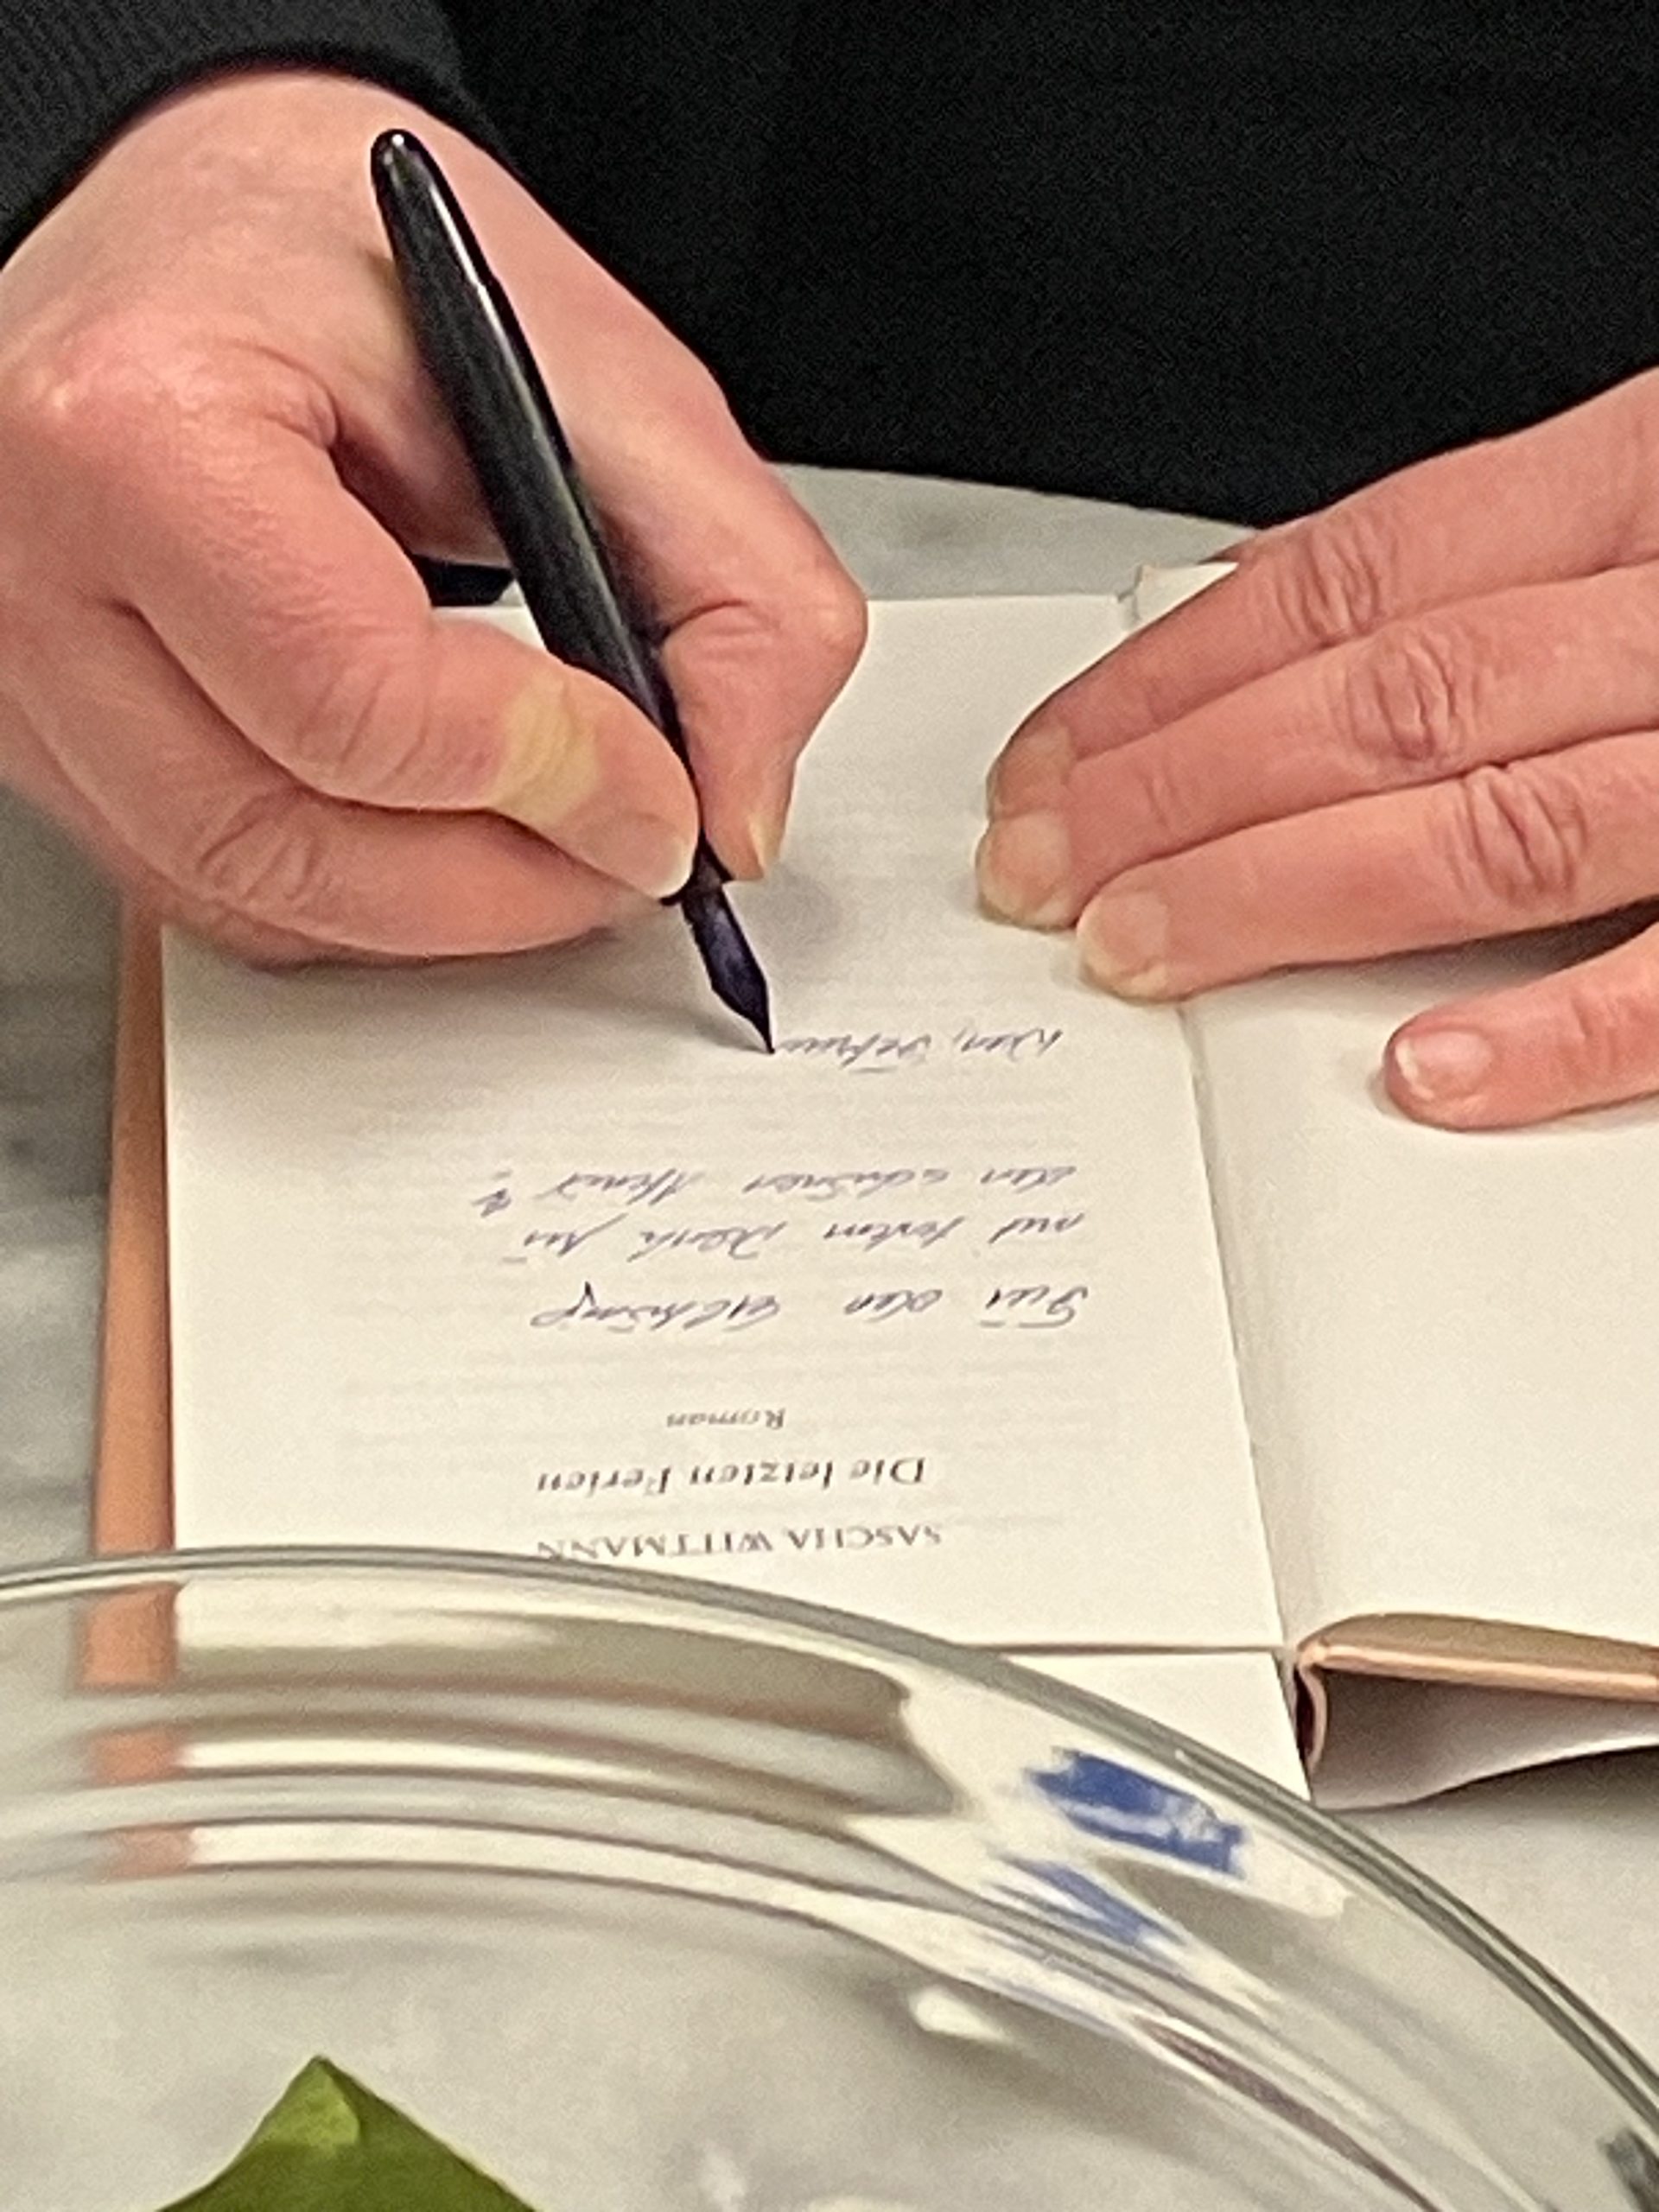 SASCHA WITTMANN
Die letzten Ferien
Roman
Für den
mit Dank für
den schönen Abend
Wien,